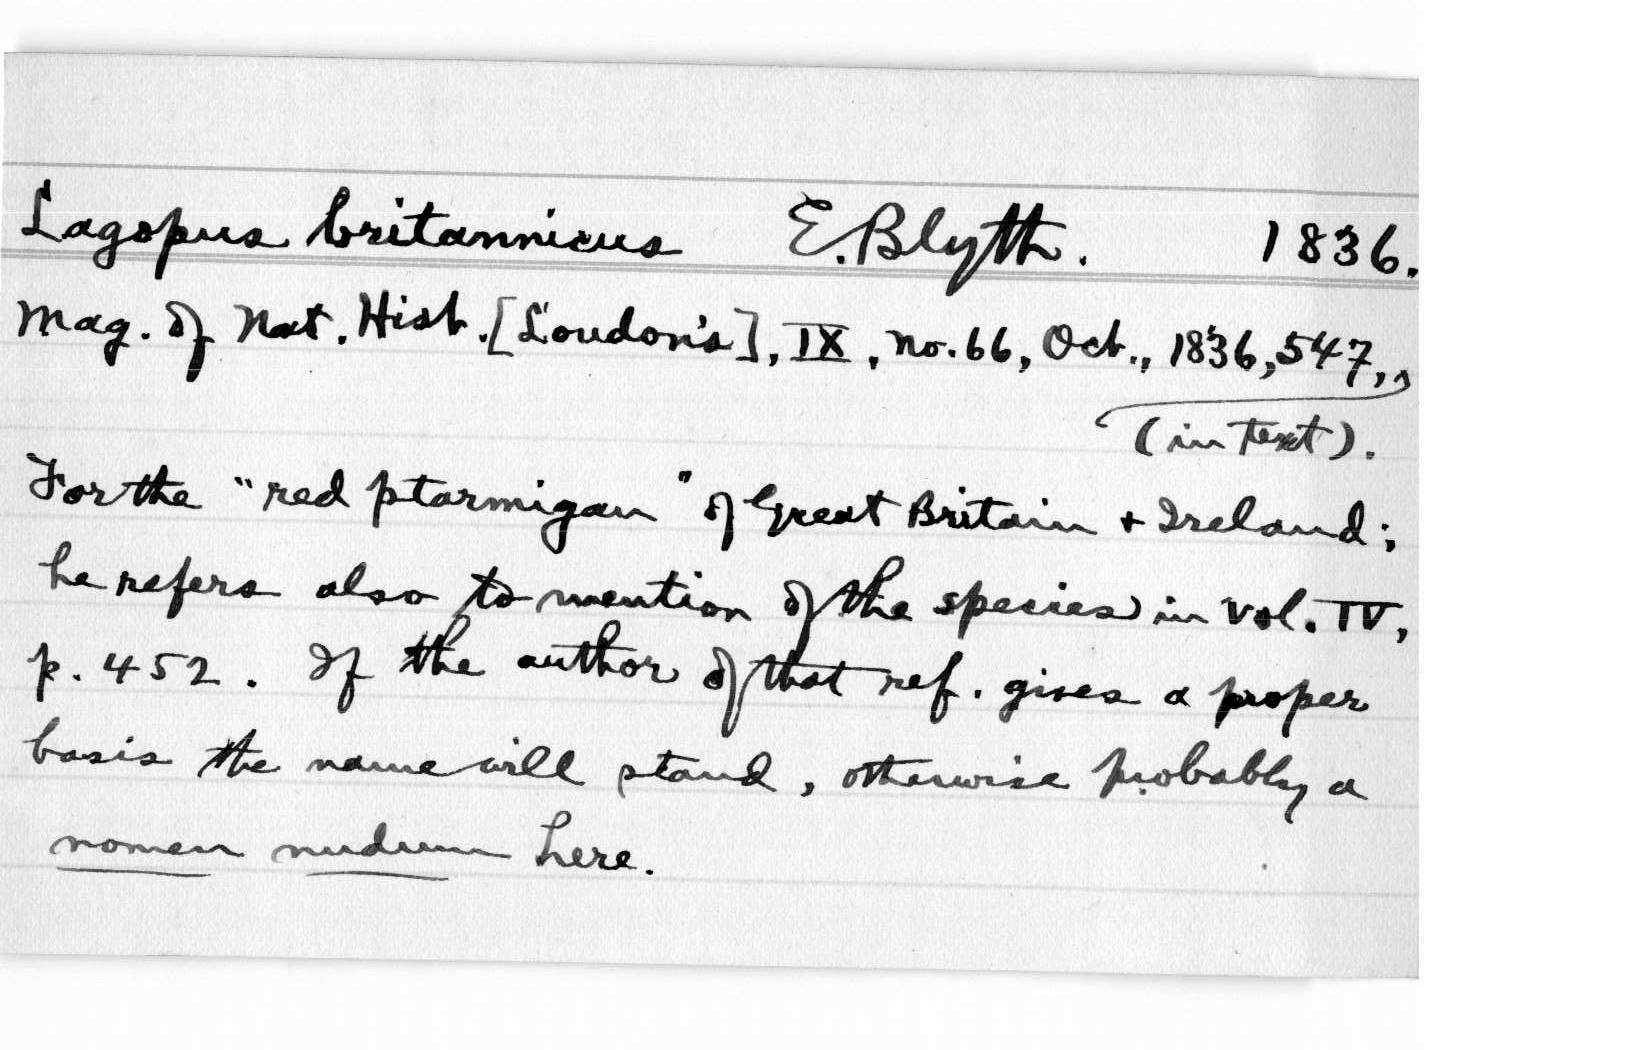 Lagopus britannicus E. Blyth. 1836.
Mag. of Nat. Hist. [Loudon's], IX, no. 66, Oct., 1836, 547,
(in text).
For the "red ptarmigan" of Great Britain + Ireland;
he refers also to mention of the species in vol. IV,
p. 452. If the author of that ref. gives a proper
basis the name will stand, otherwise probably a
nomen nudum here.